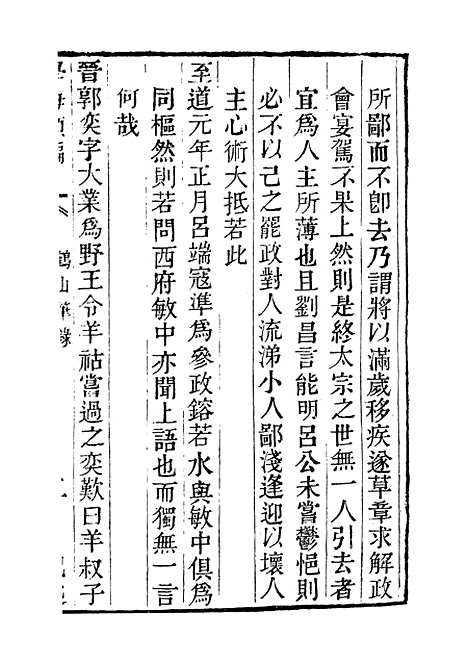 所鄙而不卽去乃謂將以滿歲移疾遂草章求解政
會宴駕不果上然則是終太宗之世無一人引去者
宜爲人主所薄也且劉昌言能明呂公未嘗鬱悒則
必不以己之罷政對人流涕小人鄙淺逢迎以壞人
主心術大抵若此
至道元年正月呂端寇準爲參政鎔若水與敏中俱爲
同樞然則若問西府敏中亦聞上語也而獨無一言
何哉
晉郭奕字大業爲野王令羊祜嘗過之奕歎曰羊叔子